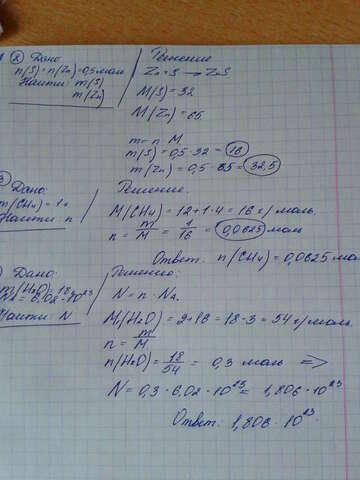 2) Дано
n(S)=n(Zn)=0,5моль
Найти: m(S)
m(Zn)
Решение
Zn+S → ZnS
M(S)=32
M(Zn)=65
m=n·M
m(S)=0,5·32=16
m(Zn)=0,5·65=32,5
3
Дано:
m(CH4)=1г
Найти: n
Решение.
M(CH4)=12+1·4=16 г/моль.
n=m/M=1/16=0,0625моль
Ответ: n(CH4)=0,0625моль
) Дано:
m(H2O)=18г
Na=6,02·10²³
Найти: N
Решение:
N=n·Na.
M(H2O)=2+16=18·3=54 г/моль
n=m/M
n(H2O)=18/54=0,3 моль =>
N=0,3·6,02·10²³=1,806·10²³
Ответ: 1,806·10²³.